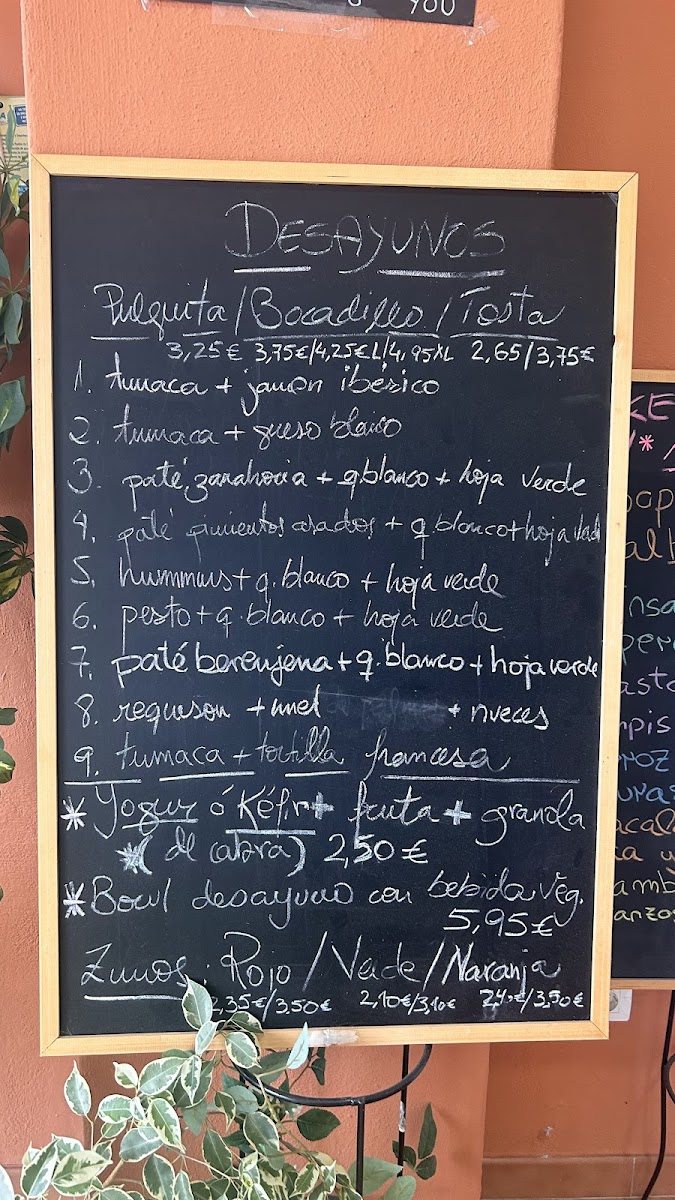 YOU
DESAYUNOS
Pulguita / Bocadillo / Tosta
3,25€ 3,75€/4,25€L/4,95XL 2,65/3,75€
1. tumaca + jamon ibérico
2. tumaca + queso blanco
3. paté zanahoria + q.blanco + hoja verde
4. paté pimientos asados + q.blanco + hoja verde
5. hummus + q.blanco + hoja verde
6. pesto + q.blanco + hoja verde
7. paté berenjena + q.blanco + hoja verde
8. requeson + miel + nueces
9. tumaca + tortilla francesa
* Yogur ó Kéfir + fruta + granola
*(de cabra) 2,50€
* Bowl desayuno con bebida veg.
5,95€
Zumos: Rojo / Verde / Naranja
2,35€/3,50€ 2,10€/3,10€ /3,50€